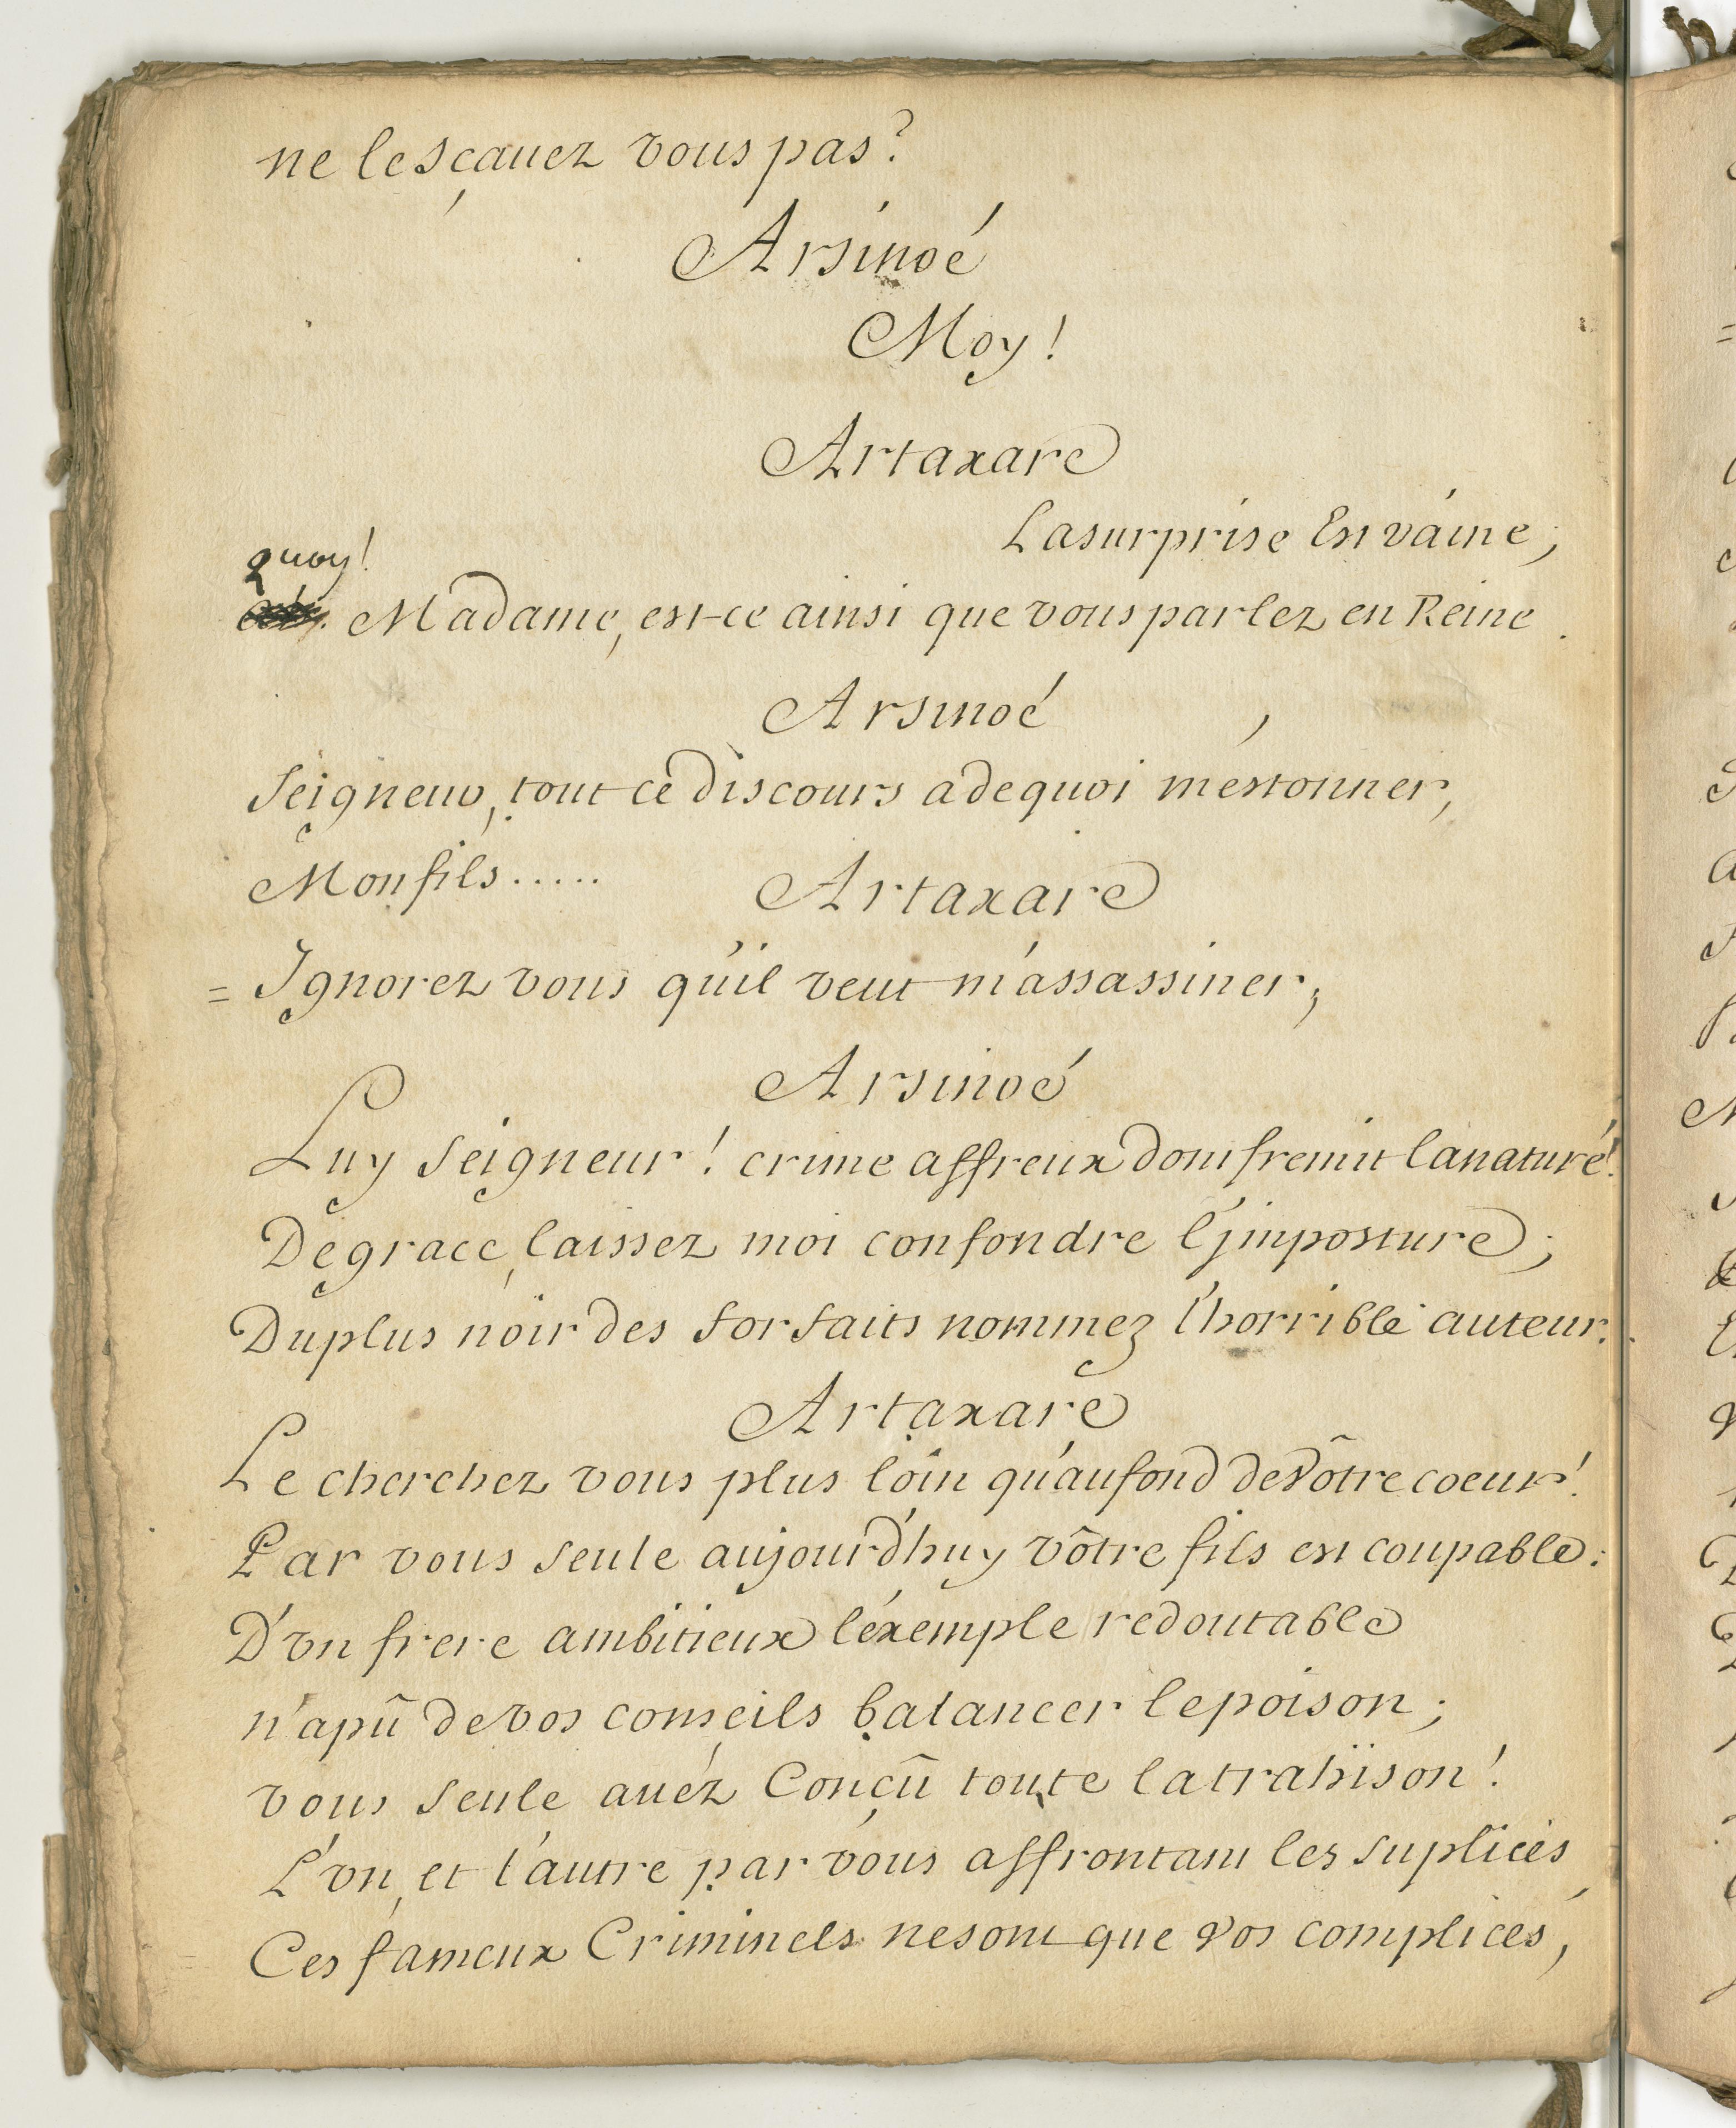 ne le sçauez vous pas?
Arsinoé
Moy!
Artaxare
La surprise Est vaine;
quoy!
Madame, est-ce ainsi que vous parlez en Reine.
Arsinoé
Seigneur, tout ce discours a de quoi m'estonner,
Mon fils.....
Artaxare
= Ignorez vous qu'il veut m'assassiner;
Arsinoé
Luy Seigneur! crime affreux dont fremit la nature!
De grace, laissez moi confondre l'jmposture;
Du plus noir des forfaits nommez l'horrible auteur.
Artaxare
Le cherchez vous plus loin qu'au fond de vôtre coeur!
Par vous seule aujourd'huy vôtre fils est coupable:
D'vn frere ambitieux l'éxemple redoutable
n'a pû de vos conseils balancer le poison;
vous seule auéz Conçû toute la trahïson!
L'vn, et l'autre par vous affrontant les suplices
Ces fameux Criminels ne sont que vos complices,